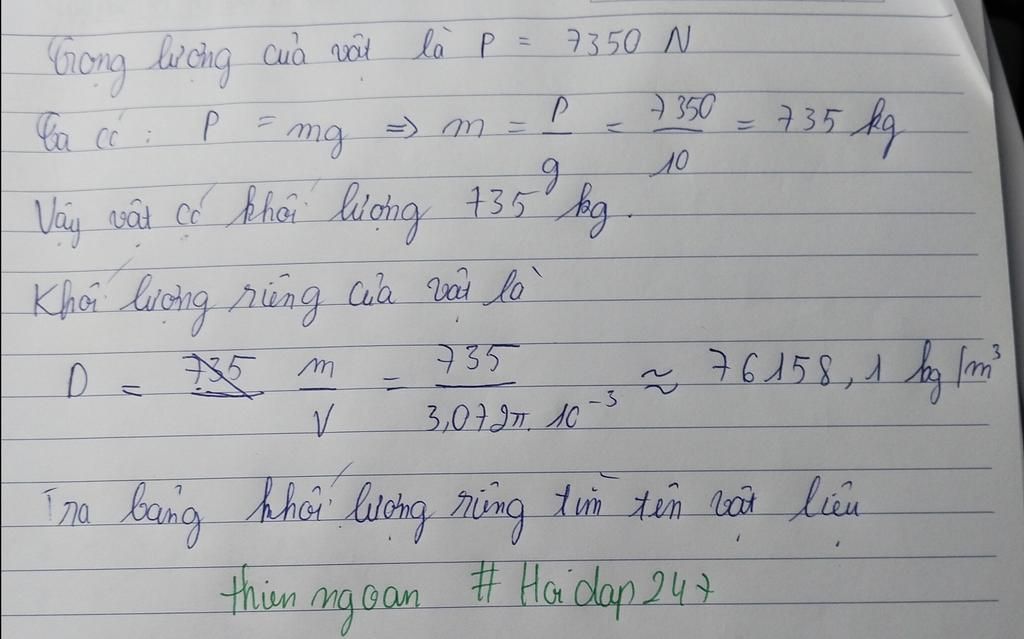 Trọng lượng của vật là P = 7350 N
Ta có : P = mg => m = P/g = 7350/10 = 735 kg
Vậy vật có khối lượng 735 kg.
Khối lượng riêng của vật là
D = 735 m/V = 735/3,072π.10^-3 ≈ 76158,1 kg/m³
Tra bảng khối lượng riêng tìm tên vật liệu
thienngoan # Hoidap247